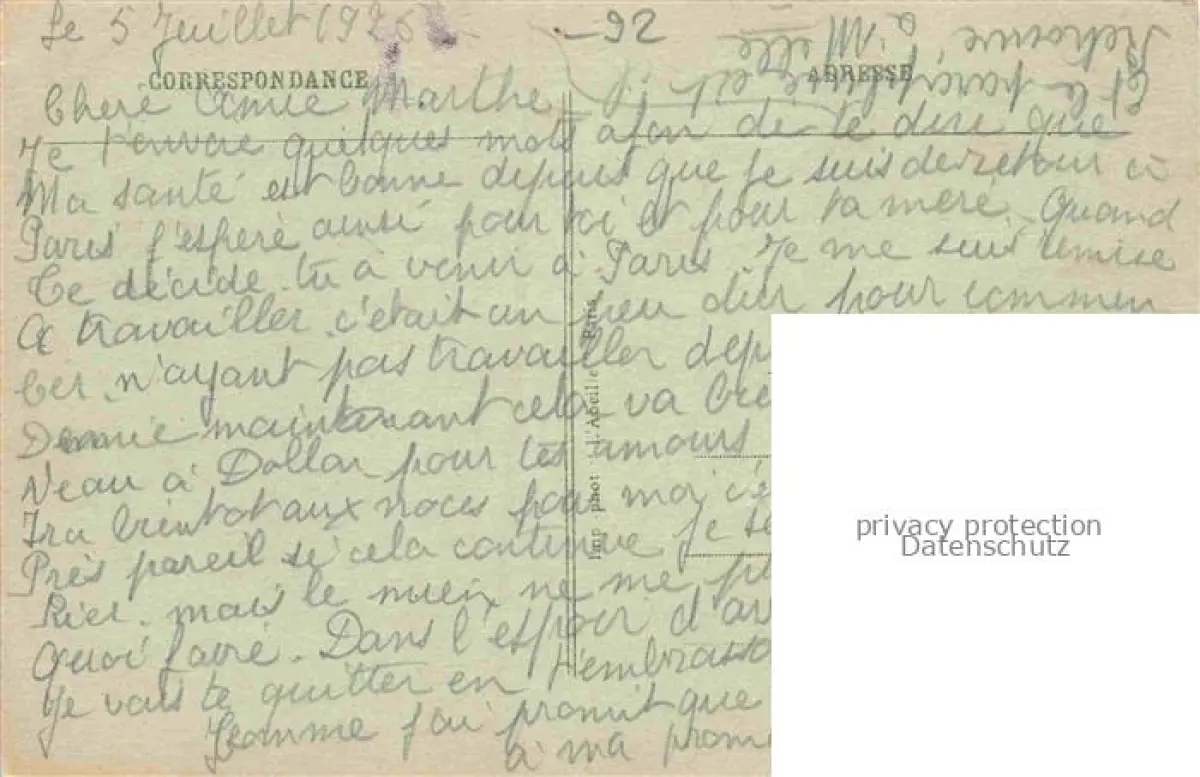 Le 5 Juillet 192
-92
CORRESPONDANCE
ADRESSE
Cheré Amie Marthe
Je t'envoie quelques mots afin de te dire que
Ma santé est bonne depuis que je suis de retour à
Paris j'esperé ainsi pour toi et pour ta meré. Quand
Te décide-tu à venir à Paris. Je me suis remise
A travailler. c'était un peu dur pour commen
Cer. n'ayant pas travailler dep
Demie maintenant cela va bie
N'eau à Dollar pour tes amours
Ira bientot aux noces pour moi c'e
Près pareil si cela continue je se
Rier. mais le mieix ne me pl
Quoi fairé. Dans l'espoir d'av
Je vais te quitter en t'embrassa
Comme j'ai promit que
à ma prom
Imp phot L'Abeille Paris
Et le
à Melle
privacy protection
Datenschutz